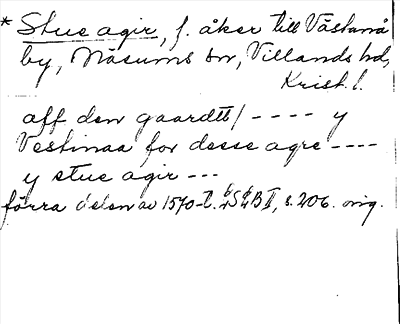 * Stue agir, f. åker till Västanå
by, Näsums sn, Villands hd,
Krist. l.
aff den gaardtt/ ---- y
Vestinaa for desse agre ----
y stue agir ---
förra delen av 1570-t. II, s. 206. orig.